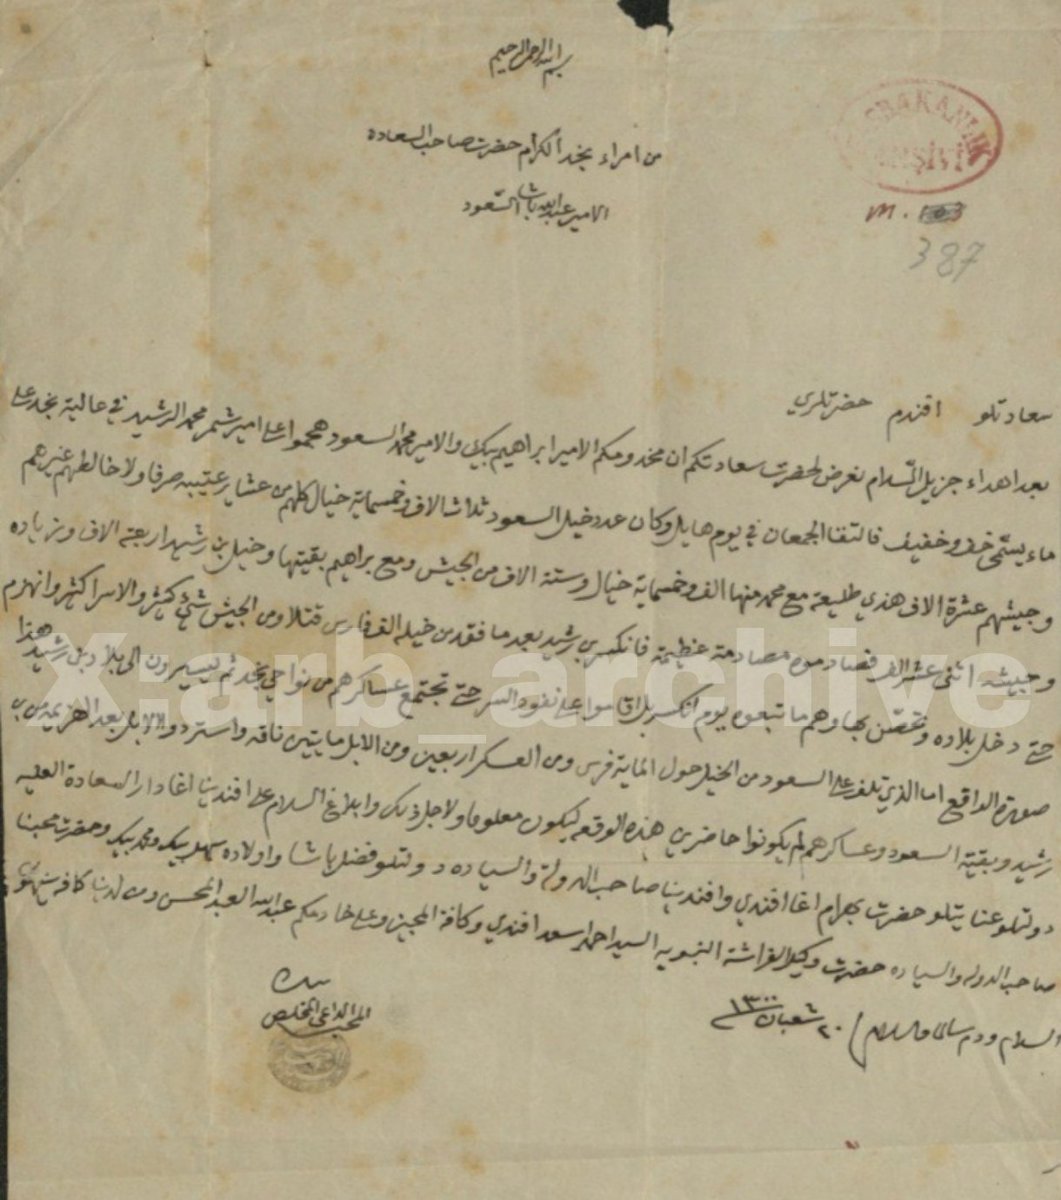 بسم الله الرحمن الرحيم
BAŞBAKANLIK
ARŞİVİ
من امراء نجد الكرام حضرت صاحب السعاده
الامير عبدالله باشا السعود
M.
387
سعادتلو افندم حضرتلري
بعد اهداء جزيل السلام نعرض لحضرت سعادتكم ان مخدومكم الامير ابراهيم بيك والامير محمد السعود هجموا على امير شمر محمد الرشيد في عالية نجد على
ماء يسمى خف وخفيف فالتقا الجمعان في يوم هايل وكان عدد خيل السعود ثلاث الاف وخمسماية خيال كلهم من عشاير عتيبه صرفا ولا خالطهم غيرهم
وجيشهم عشرة الاف هذي طليعة مع محمد منها الف وخمسماية خيال وستة الاف من الجيش ومع براهيم بقيتها وخيل بن رشيد اربعة الاف وزياده
وجيشه اثنى عشر الف فصادموه مصادمة عظيمة فانكسر بن رشيد بعد ما فقد من خيله الف فارس قتلا ومن الجيش شئ كثير والاسرا كثير وانهزم
حتى دخل بلاده وتحصن بها وهم ما تبعوه يوم انكسر بل اقاموا على نفود السر حتى تجتمع عساكرهم من نواحي نجد ثم يسيرون الى بلاد بن رشيد هذا
صورة الواقع اما الذي تلف على السعود من الخيل حول الماية فرس ومن العسكر اربعين ومن الابل مايتين ناقه واستردوا الابل بعد الهزيمه من بن
رشيد وبقية السعود وعساكرهم لم يكونوا حاضرين هذه الوقعه ليكون معلوما ولاجل ذلك وابلاغ السلام على افندينا اغا دار السعادة العليه
دولتلو عنايتلو حضرت بهرام اغا افندي وافندينا صاحب الدولة والسياده دولتلو فضل باشا واولاده سهل بيك ومحمد بيك وحضرت محبنا
صاحب الدوله والسياده حضرت وكيل الفراشة النبويه السيد احمد اسعد افندي وكافة المحبين وعلى خادمكم عبدالله العبد المحسن ومن لدينا كافه ينهون
السلام ودم سالما والسلام ٢٠ شعبان ١٣٠٠
المحب الداعي المخلص
x:arb_archive